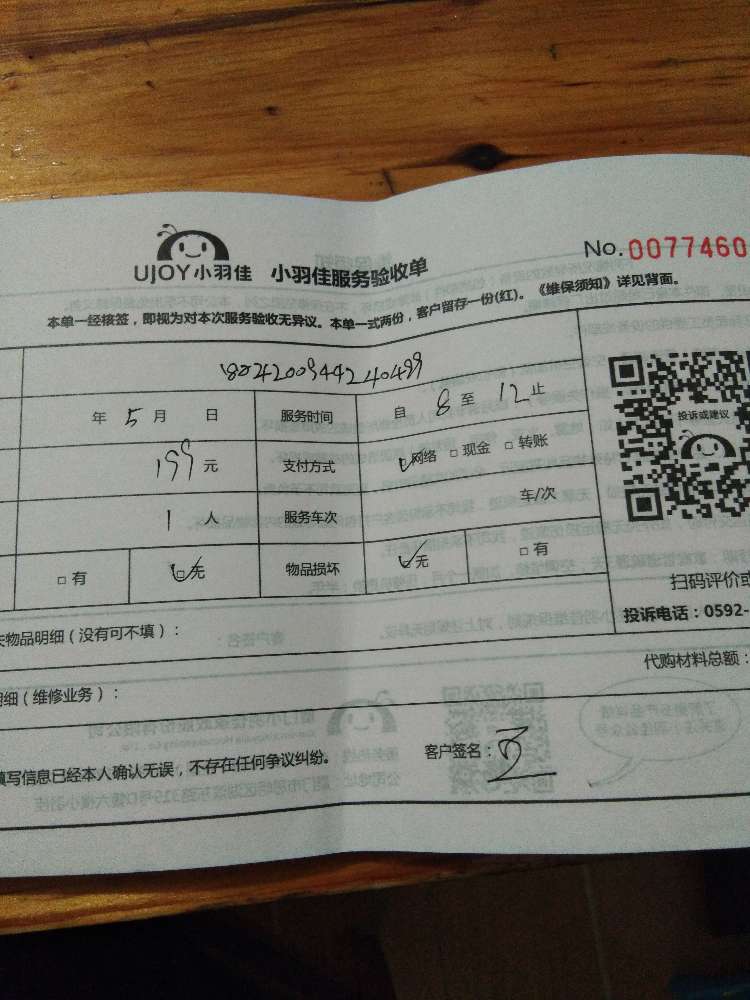 UJOY小羽佳 小羽佳服务验收单 No.0077460
本单一经核签，即视为对本次服务验收无异议。本单一式两份，客户留存一份(红)。《维保须知》详见背面。
年 5 月 日 服务时间 自 8 至 12 止
投诉或建议
199 元 支付方式 ☑网络 □现金 □转账
1 人 服务车次 车/次
□有 ☑无 物品损坏 ☑无 □有
扫码评价或
投诉电话：0592-
失物品明细（没有可不填）：
代购材料总额：
明细（维修业务）：
填写信息已经本人确认无误，不存在任何争议纠纷。 客户签名：